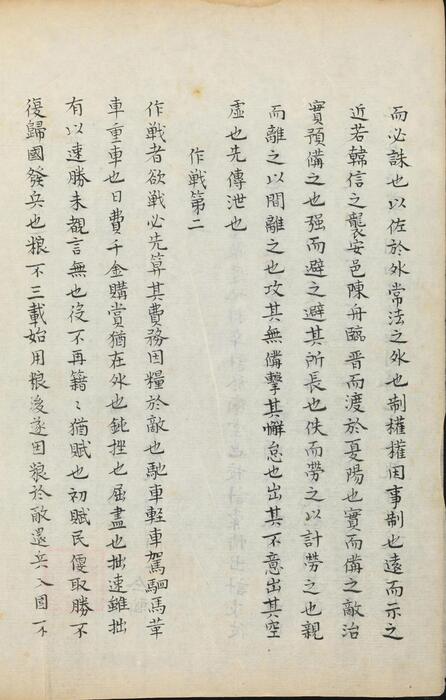 而必誅也以佐於外常法之外也制權權因事制也遠而示之
近若韓信之襲安邑陳舟臨晋而渡於夏陽也實而備之敵治
實預備之也强而避之避其所長也佚而勞之以計勞之也親
而離之以間離之也攻其無備擊其懈怠也出其不意出其空
虛也先傳泄也
作戰第二
作戰者欲戰必先算其費務因糧於敵也馳車軽車駕駟馬革
車重車也日費千金購賞猶在外也鈍挫也屈盡也拙速雖拙
有以速勝未覩言無也役不再籍〻猶賦也初賦民便取勝不
復歸國發兵也粮不三載始用粮後遂因粮於敵還兵入國不